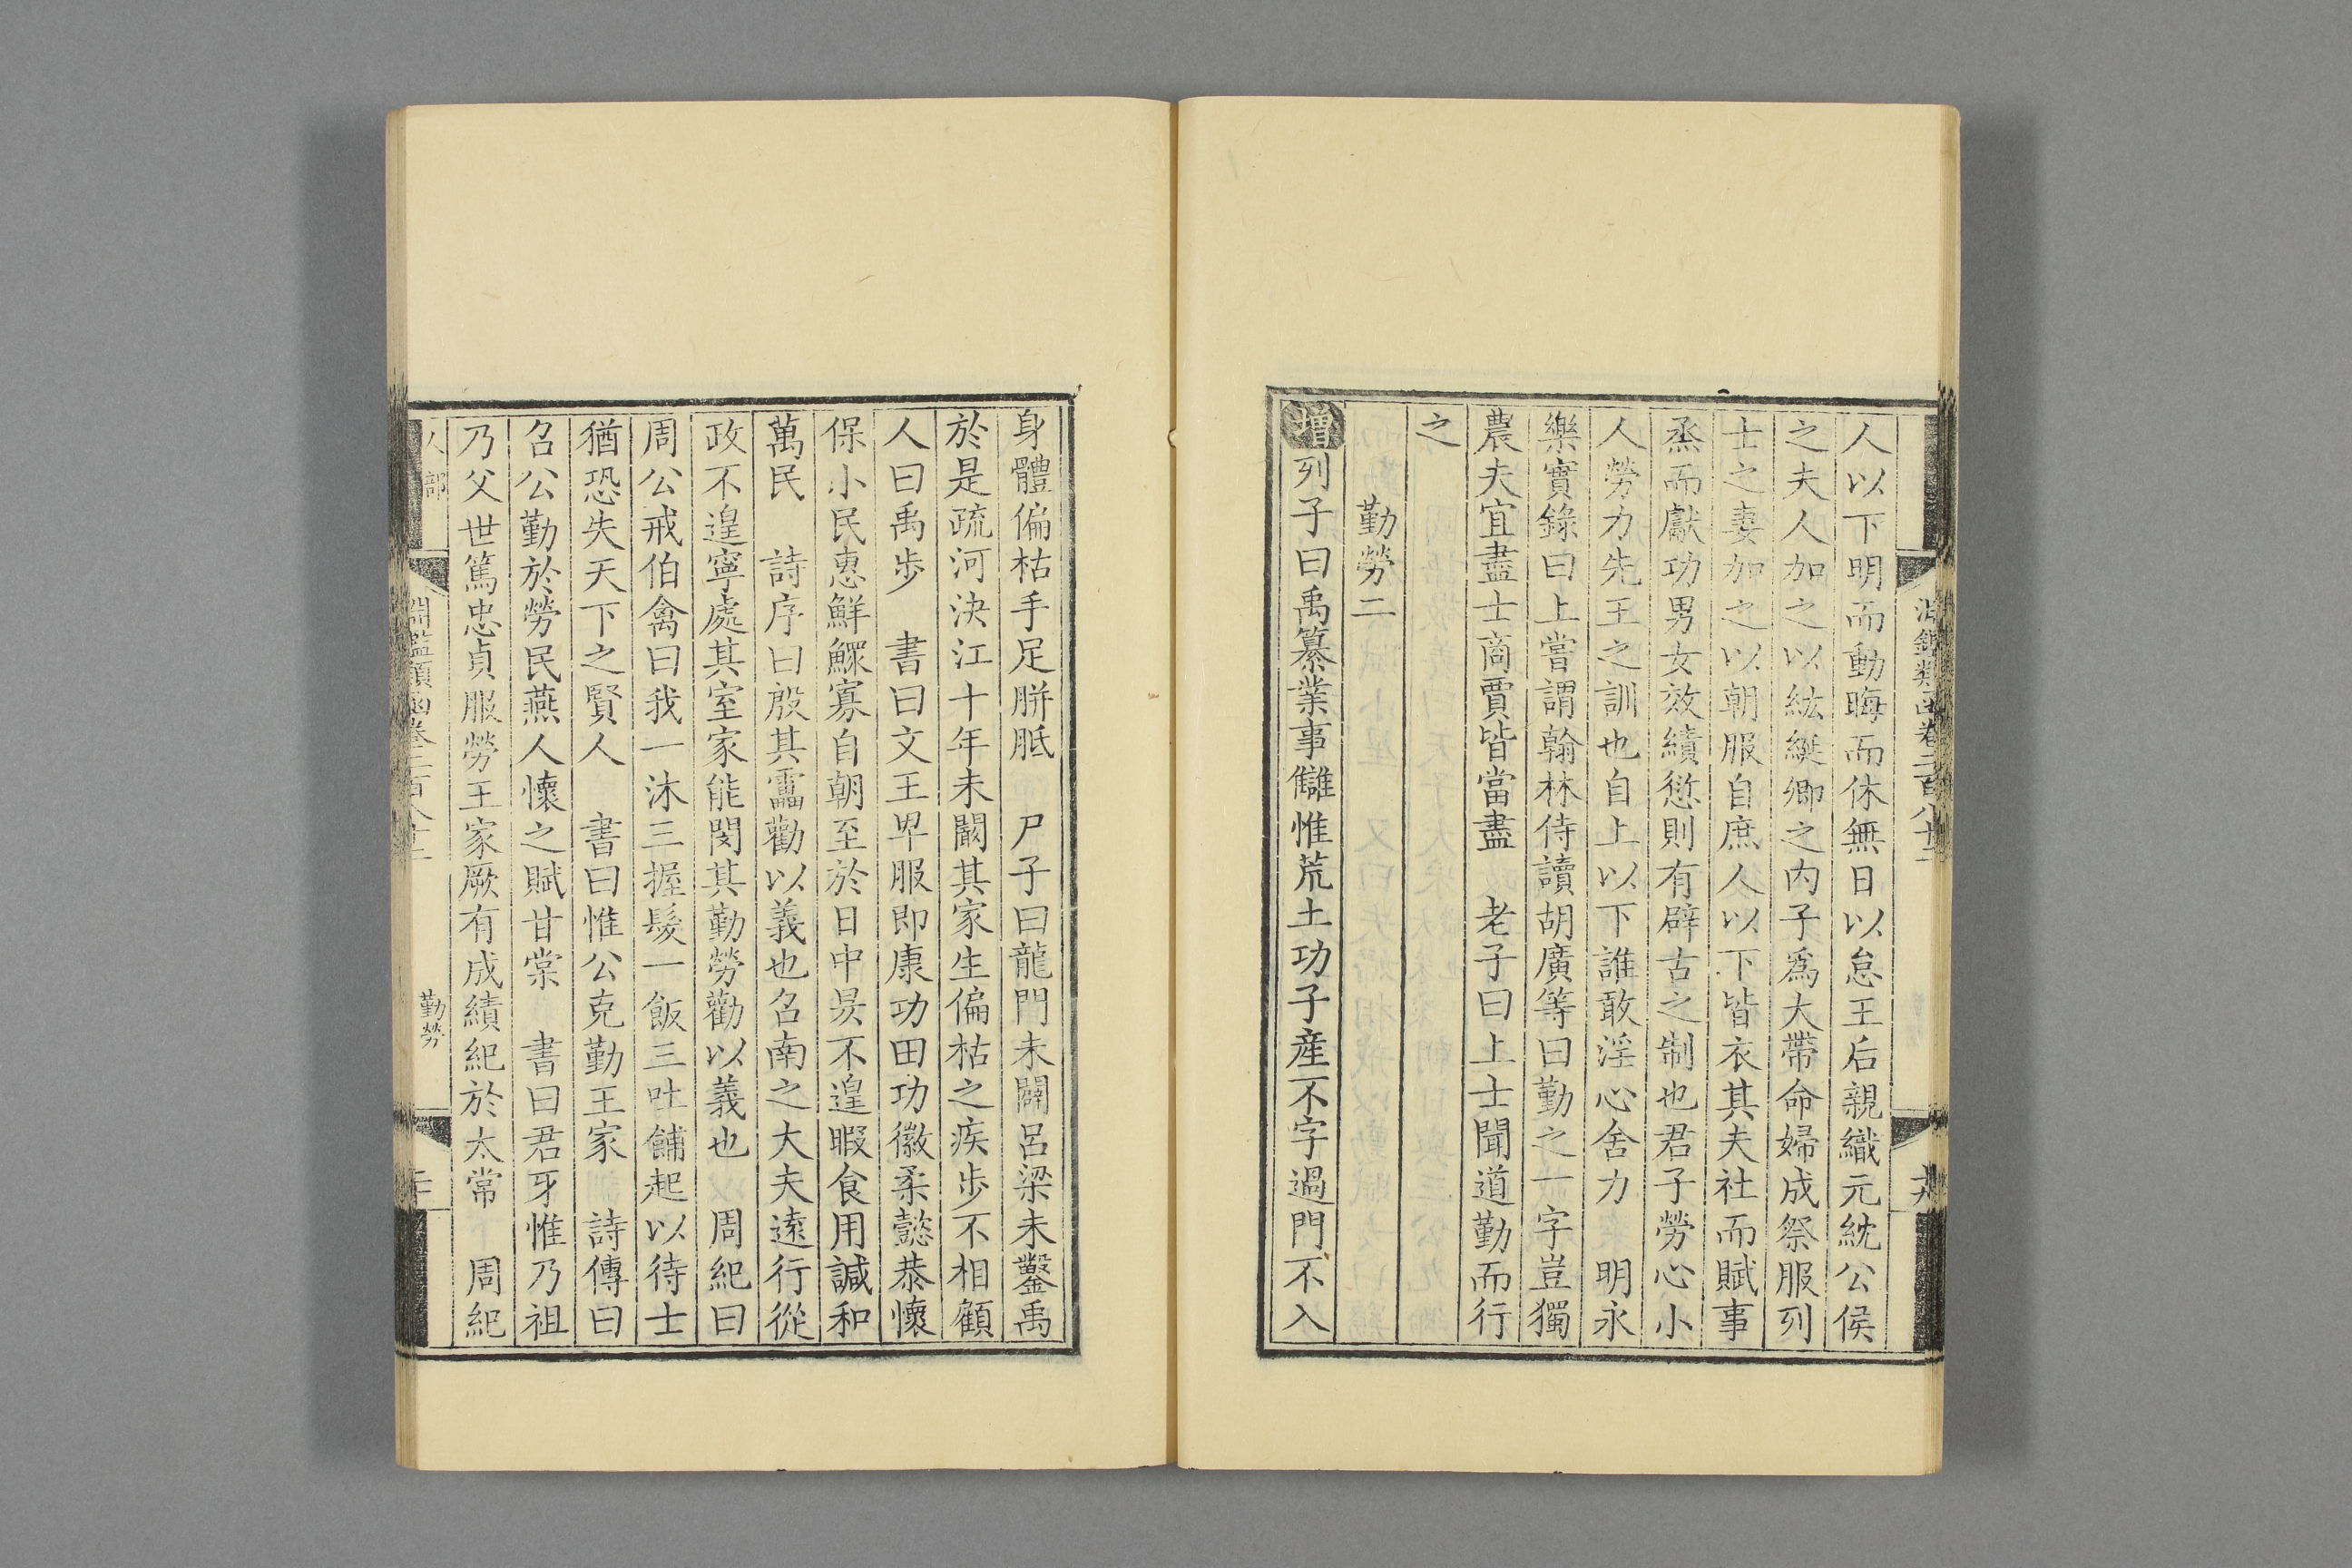 淵鑑類函卷二百八十二
人以下明而動晦而休無日以怠王后親織元紞公侯
之夫人加之以紘綖卿之內子爲大帶命婦成祭服列
士之妻加之以朝服自庶人以下皆衣其夫社而賦事
烝而獻功男女效績愆則有辟古之制也君子勞心小
人勞力先王之訓也自上以下誰敢淫心舍力　明永
樂實錄曰上嘗謂翰林侍讀胡廣等曰勤之一字豈獨
農夫宜盡士商賈皆當盡　老子曰上士聞道勤而行
之
勤勞二
增列子曰禹纂業事讎惟荒土功子產不字過門不入
身體偏枯手足胼胝　尸子曰龍門未闢呂梁未鑿禹
於是疏河決江十年未闞其家生偏枯之疾步不相顧
人曰禹步　書曰文王卑服即康功田功徽柔懿恭懷
保小民惠鮮鰥寡自朝至於日中昃不遑暇食用諴和
萬民　詩序曰殷其靁勸以義也召南之大夫遠行從
政不遑寧處其室家能閔其勤勞勸以義也　周紀曰
周公戒伯禽曰我一沐三握髮一飯三吐餔起以待士
猶恐失天下之賢人　書曰惟公克勤王家　詩傳曰
召公勤於勞民燕人懷之賦甘棠　書曰君牙惟乃祖
乃父世篤忠貞服勞王家厥有成績紀於太常　周紀
人部
淵鑑類函卷二百八十二
勤勞